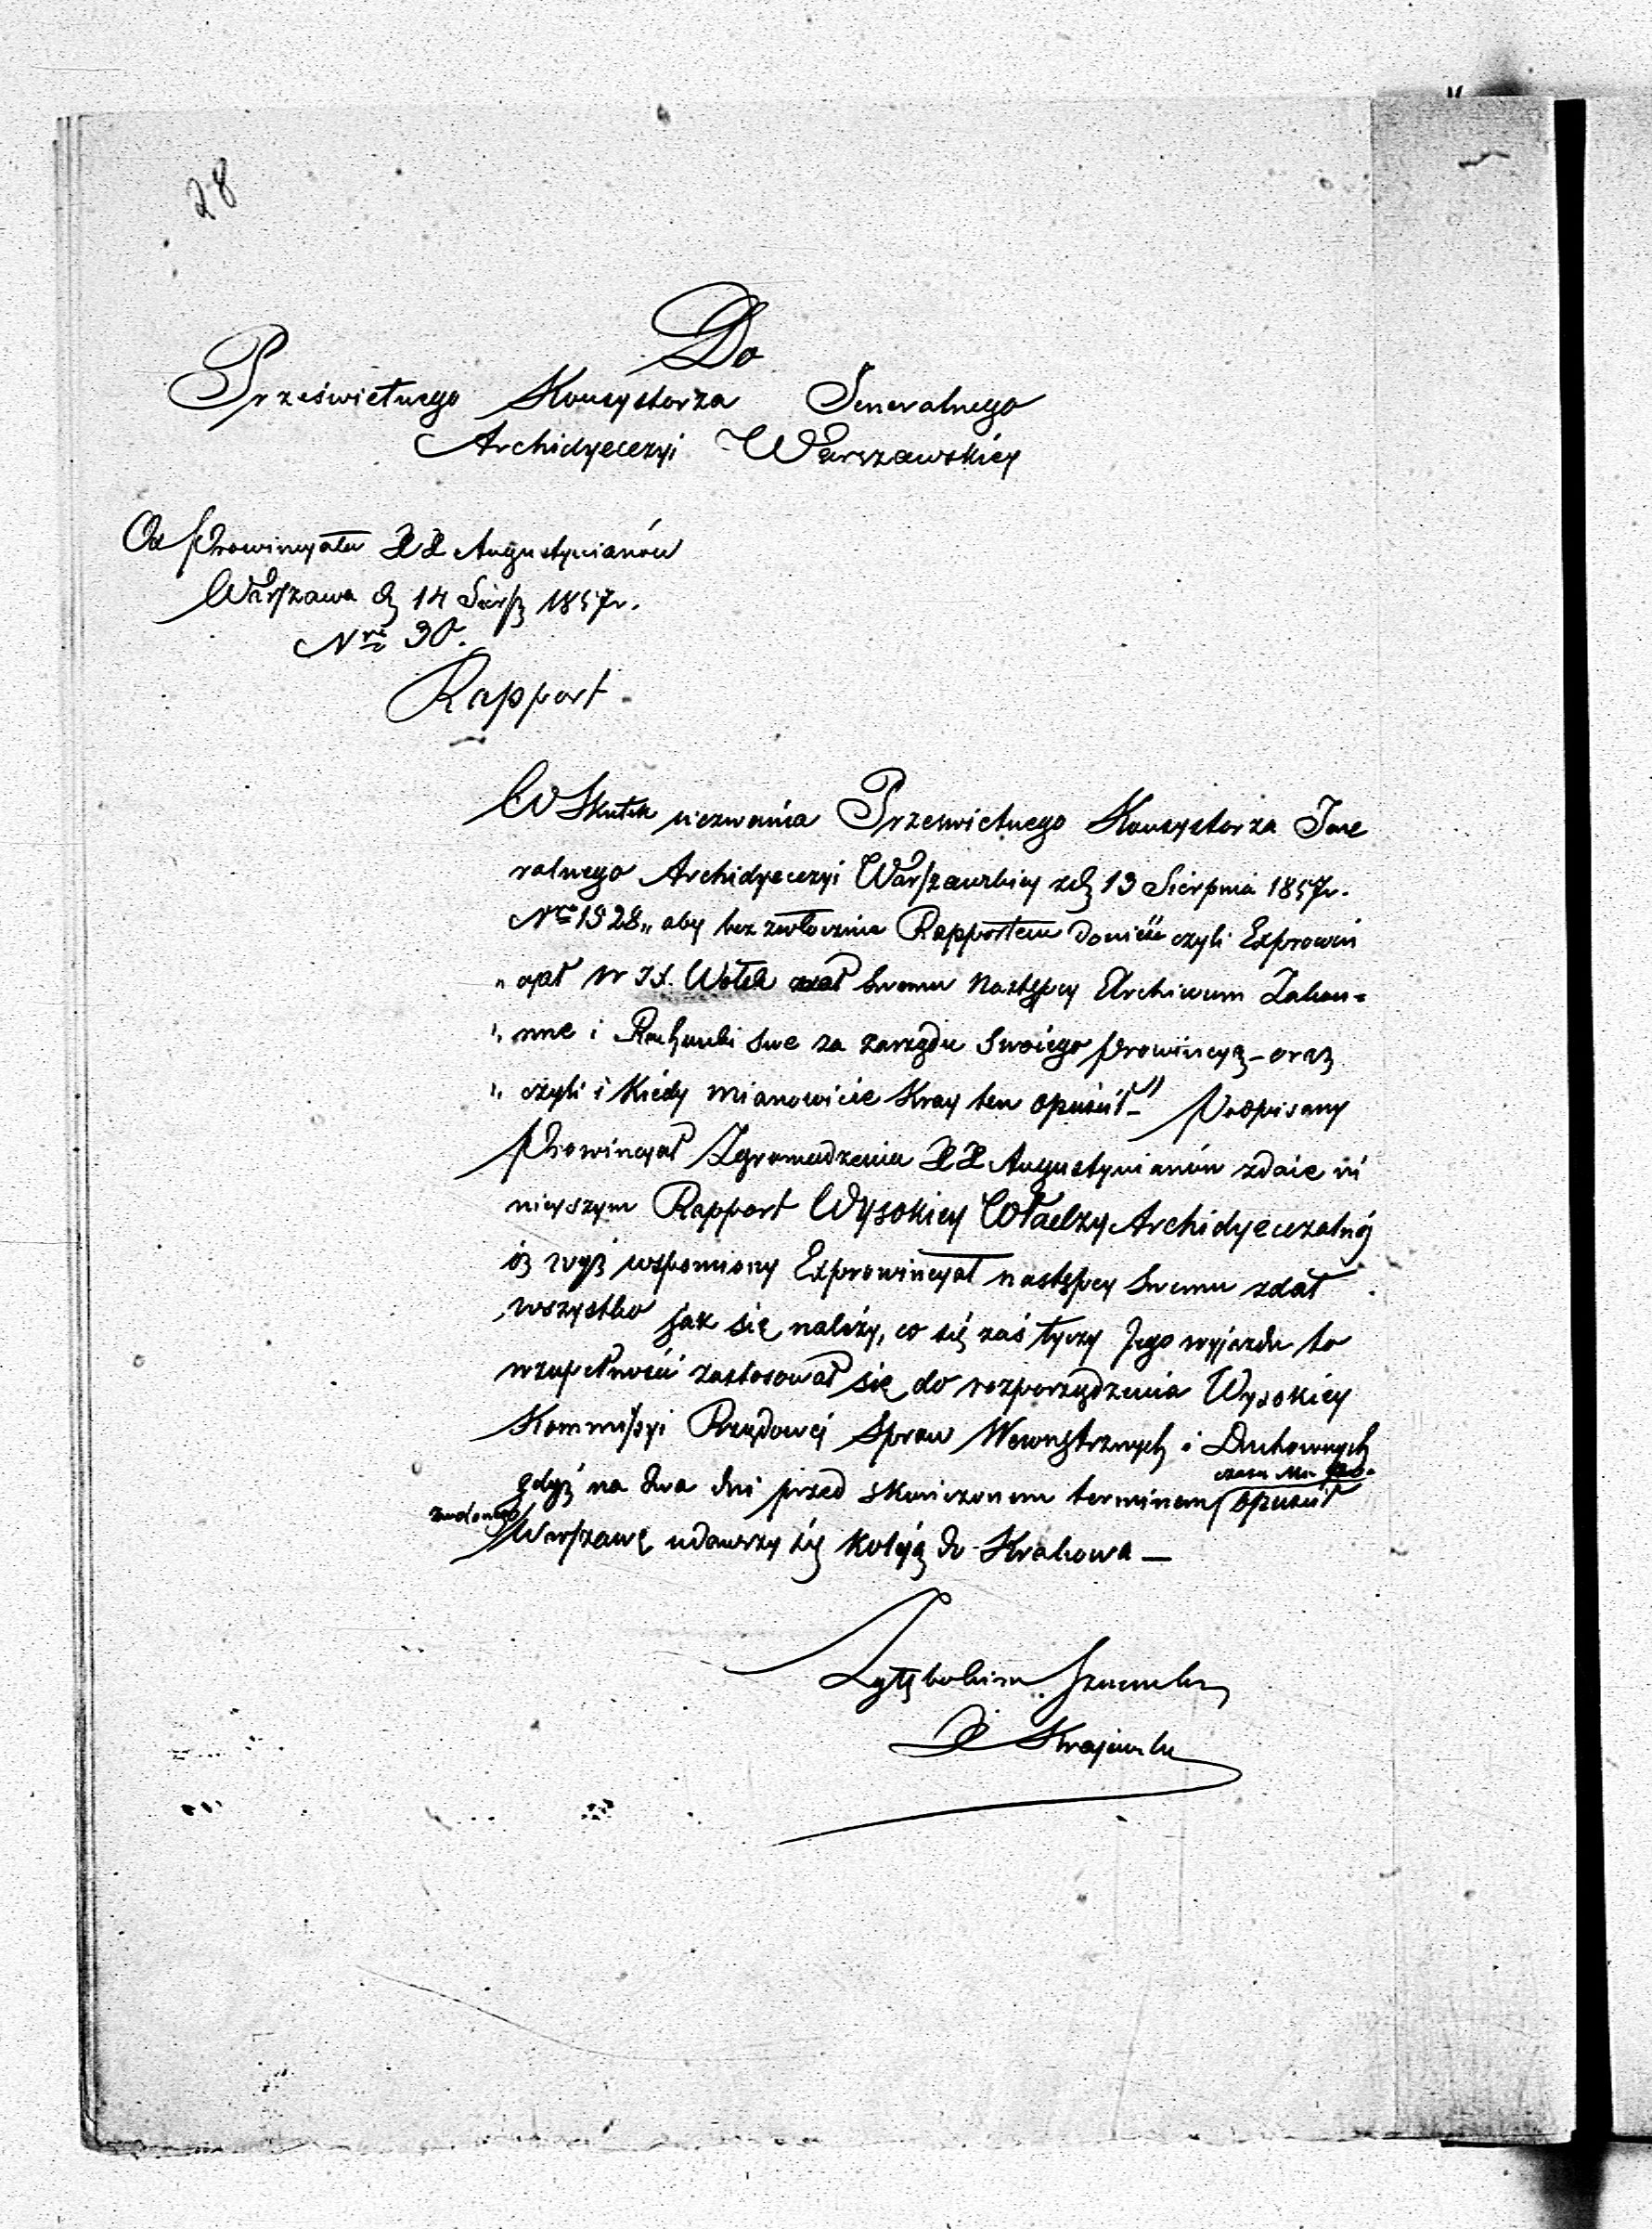 28
Do
Prześwietnego Konsystorza Generalnego
Archidyecezyi Warszawskiey
Od Prowincyała XX Augustyianów
Warszawa d 14 Sierp 1857r.
Nro 30.
Rapport
W Skutek wezwania Prześwietnego Konsystorza Jene
ralnego Archidyecezyi Warszawskiey zd 13 Sierpnia 1857r.
Nro 1928 „ aby bez zwłocznie Rapportem doniósł czyli Exprowin
„ cyał W JX. Wołek zdał swemu Następcy Archiwum Zakon=
„ nne i Rachunki swe za zarządu Swoiego Prowincyą - oraz
„ czyli i kiedy mianowicie Kray ten opuścił -" Podpisany
Prowincyał Zgromadzenia XX Augustynianów zdaie ni
nieyszym Rapport Wysokiey Władzy Archidyecezalnéj
iż wyż wspomiony Exprowincyał następcy swemu zdał
wszystko jak się należy, co się zaś tyczy Jego wyjazdu to
wzupełności zastosował się do rozporządzenia Wysokiey
Kommissyi Rządowéj Spraw Wewnętrznych i Duchownych
gdyż na dwa dni przed skończonem terminem opuścił
czasu Mu
Warszawę udawszy się koleją do Krakowa —
X Krajewski